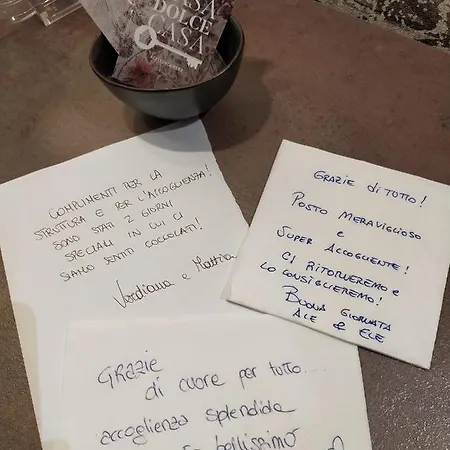 CASA
DOLCE
CASA
COMPLIMENTI PER LA
STRUTTURA E PER L'ACCOGLIENZA!
SONO STATI 2 GIORNI
SPECIALI IN CUI CI
SIAMO SENTITI COCCOLATI!
Verdiana e Mattia
GRAZIE di TUTTO!
POSTO MERAVIGLIOSO
e
SUPER ACCOGLIENTE!
CI RITORNEREMO e
LO CONSIGLIEREMO!
BUONA GIORNATA
ALE & ELE
GRAZIE
di cuore per tutto....
accoglienza splendida
bellissimo